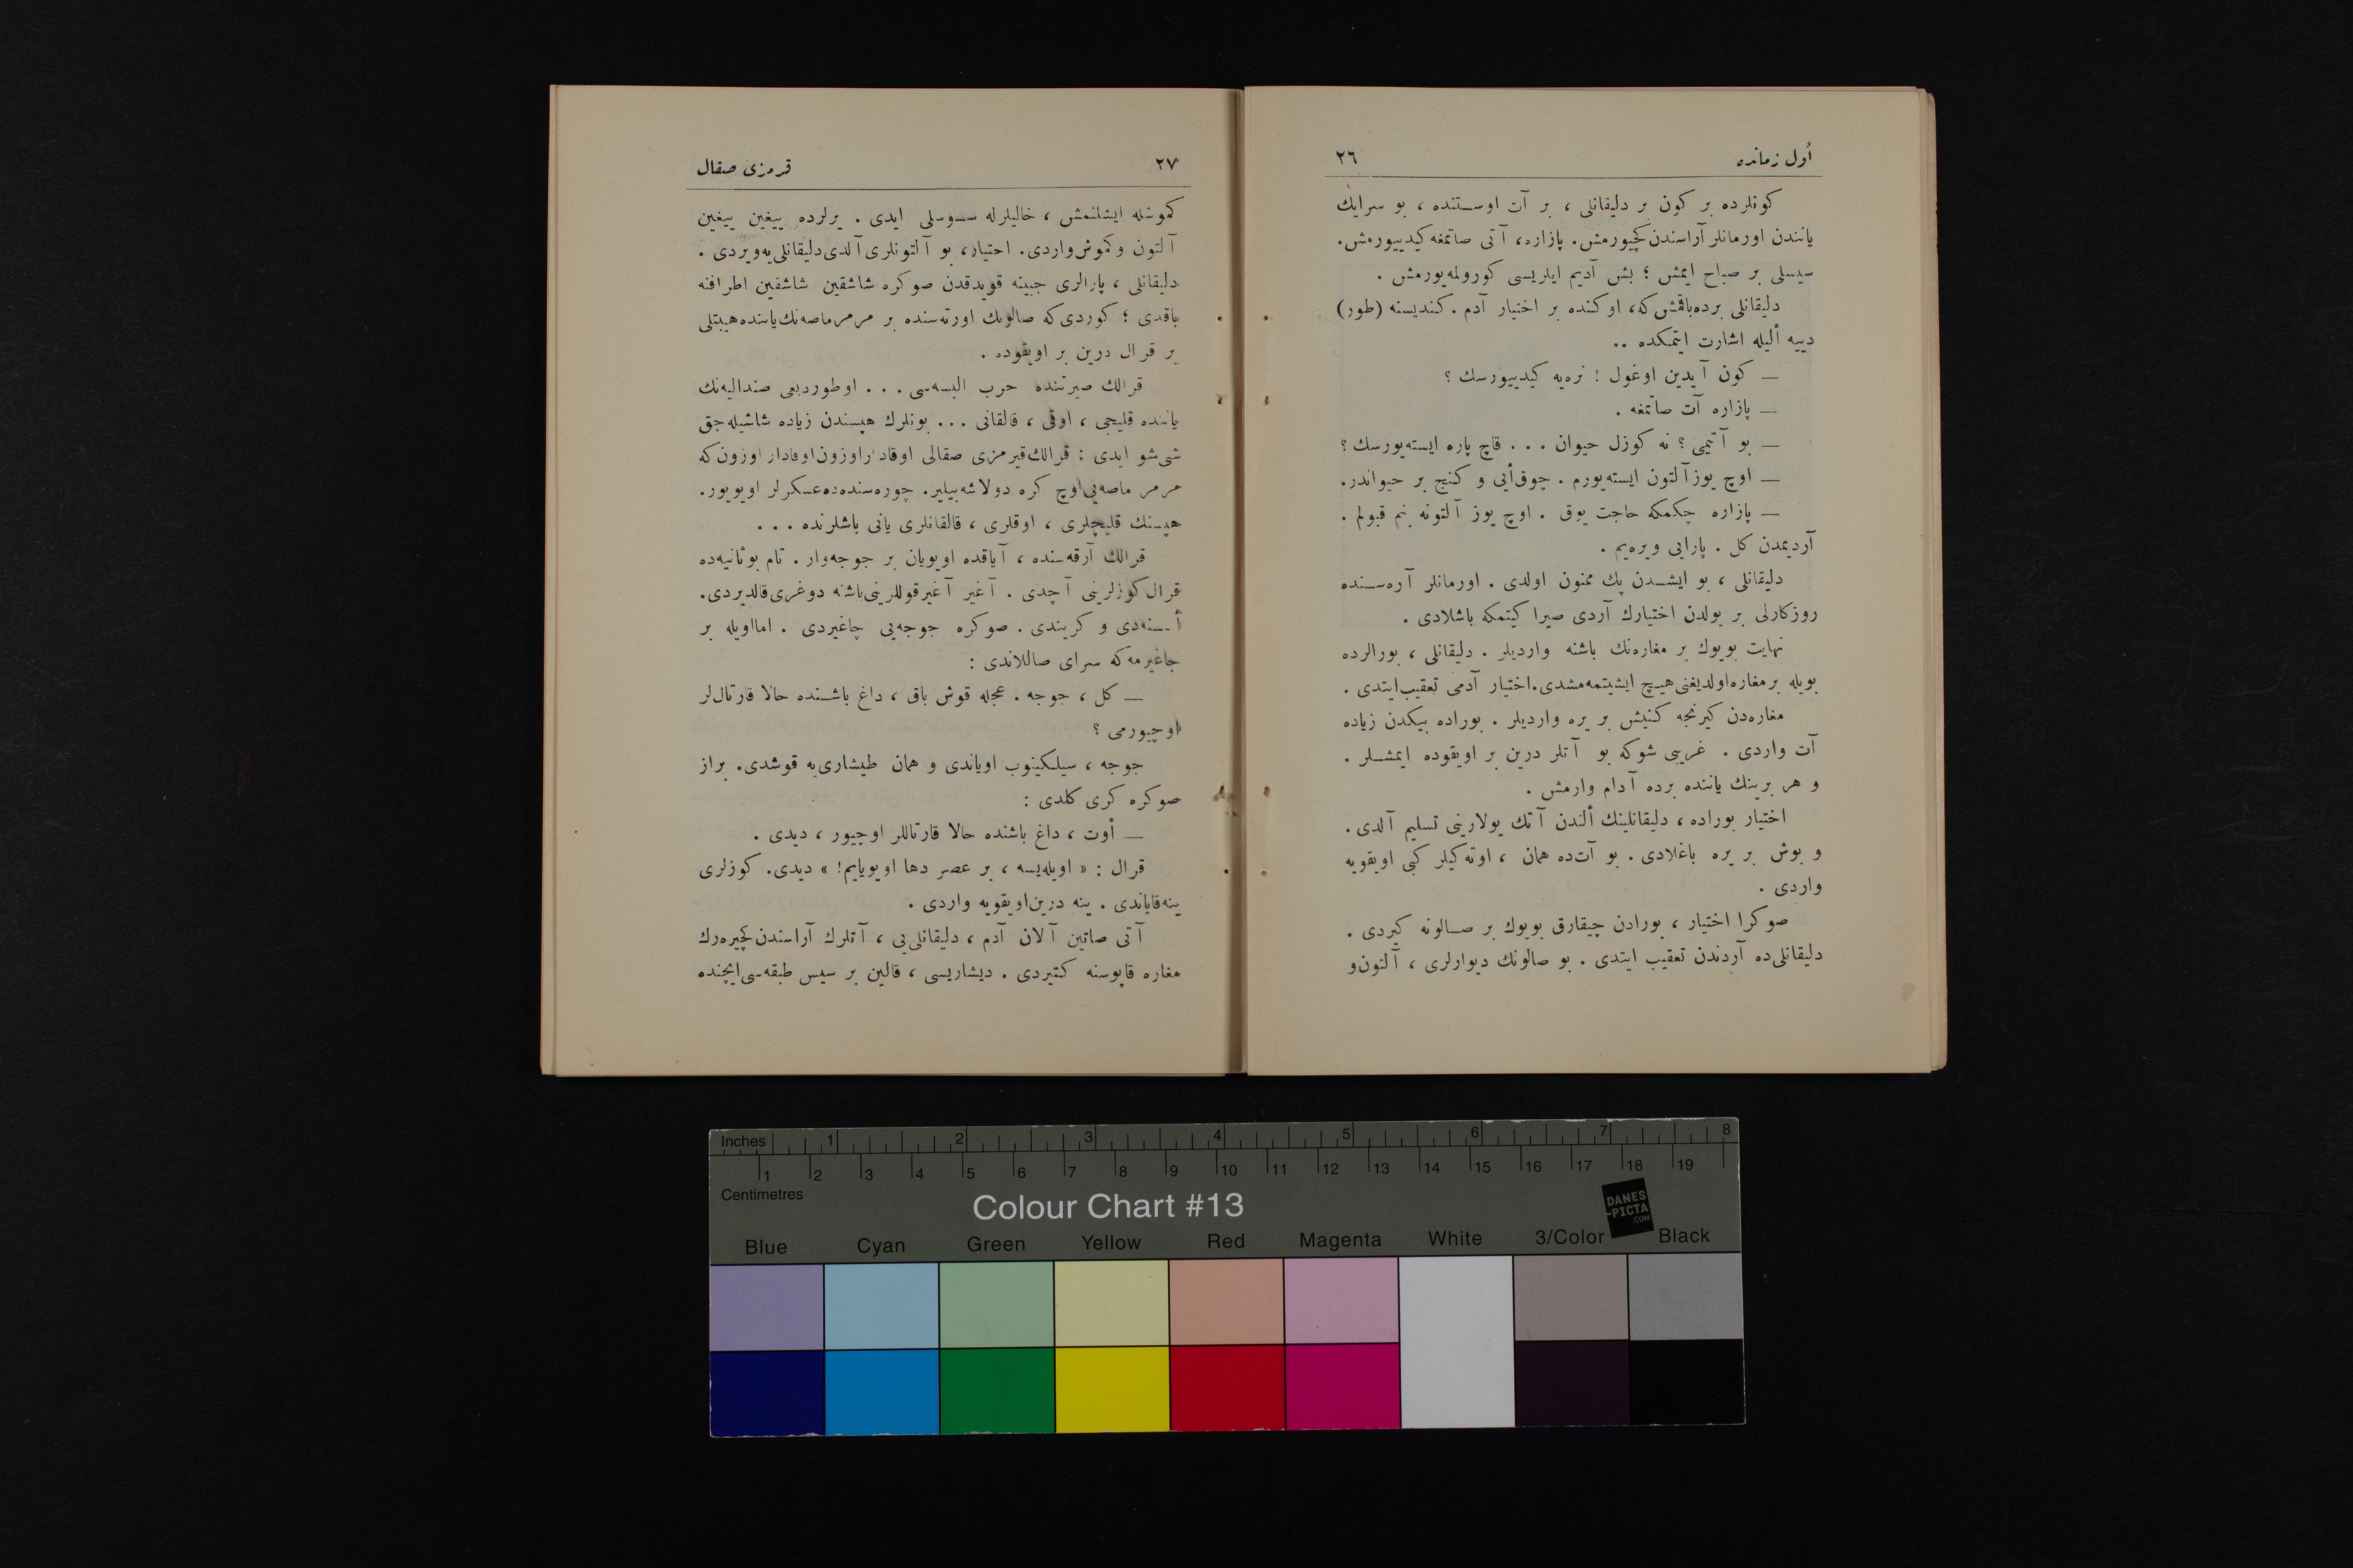 أول زمانده ٢٦
كونلرده بر كون بر دليقانلی ، بر آت اوستنده ، بو سرايك
يانندن اورمانلر آراسندن كچيورمش. پازاره، آتی صاتمغه كيدييورمش.
سيسلی بر صباح ايمش ؛ بش آديم ايلريسی كورولمه‌يورمش .
دليقانلی برده‌باقمش‌كه، اوكنده بر اختيار آدم . كنديسنه (طور)
دييه أليله اشارت ايتمكده ..
— كون آيدين اوغول ! نره‌يه كيدييورسك ؟
— پازاره آت صاتمغه .
— بو آتيمی ؟ نه كوزل حيوان ... قاچ پاره ايسته‌يورسك ؟
— اوچ يوز آلتون ايسته‌يورم . چوق‌أيی و كنج بر حيواندر.
— پازاره چكمكه حاجت يوق . اوچ يوز آلتونه بنم قبولم .
آرديمدن كل . پارايی ويره‌يم .
دليقانلی ، بو ايشدن پك ممنون اولدی . اورمانلر آره‌سنده
روزكارلی بر يولدن اختيارك آردی صيرا كيتمكه باشلادی .
نهايت بويوك بر مغاره‌نك باشنه وارديلر . دليقانلی ، بورالرده
بويله بر مغاره‌اولديغنی هيچ ايشيتمه‌مشدی. اختيار آدمی تعقيب ايتدی .
مغاره‌دن كيرنجه كنيش بر يره وارديلر . بوراده بيكدن زياده
آت واردی . غريبی شوكه بو آتلر درين بر اويقوده ايمشلر .
و هر برينك ياننده برده آدام وارمش .
اختيار بوراده ، دليقانلينك ألندن آتك يولارينی تسليم آلدی.
و بوش بر يره باغلادی . بو آت‌ده همان ، اوته‌كيلر كبی اويقويه
واردی .
صوكرا اختيار ، بورادن چيقارق بويوك بر صالونه كيردی .
دليقانلی‌ده آردندن تعقيب ايتدی . بو صالونك ديوارلری ، آلتون‌و
٢٧ قرمزی صقال
كموشله ايشلنمش ، خاليلرله سوسلی ايدی . يرلرده ييغين ييغين
آلتون و كموش واردی. احتيار، بو آلتونلری آلدی دليقانلی‌يه‌ويردی .
دليقانلی ، پارالری جبينه قويدقدن صوكره شاشقين شاشقين اطرافنه
باقدی ؛ كوردی كه صالونك اورته‌سنده بر مرمر ماصه‌نك‌ياننده هيبتلی
بر قرال درين بر اويقوده .
قرالك صيرتنده حرب البسه‌سی ... اوطورديغی صنداليه‌نك
ياننده قليجی ، اوقی ، قالقانی ... بونلرك هپسندن زياده شاشيله‌جق
شی شو ايدی : قرالك قيرمزی صقالی اوقادار اوزون اوقادار اوزون كه
مرمر ماصه‌يی اوچ كره دولاشه‌بيلير. چوره‌سنده‌ده عسكرلر اويويور.
هپسنك قليچلری ، اوقلری ، قالقانلری يانی باشلرنده ...
قرالك آرقه‌سنده ، آياقده اويويان بر جوجه‌وار . تام بوثانيه‌ده
قرال كوزلرينی آچدی . آغير آغير قوللرينی باشنه دوغری قالديردی.
أسنه‌دی و كريندی . صوكره جوجه‌يی چاغيردی . امااويله بر
چاغيرمه‌كه سرای صاللاندی :
— كل ، جوجه . عجله قوش باق ، داغ باشنده حالا قارتال‌لر
اوچيورمی ؟
جوجه ، سيلكينوب اوياندی و همان طيشاری‌يه قوشدی. براز
صوكره كری كلدی :
— أوت ، داغ باشنده حالا قارتاللر اوچيور ، ديدی .
قرال : « اويله‌يسه ، بر عصر دها اويويايم! » ديدی. كوزلری
ينه‌قاپاندی . ينه درين‌اويقويه واردی .
آتی صاتين آلان آدم ، دليقانلی‌يی ، آتلرك آراسندن كچيره‌رك
مغاره قاپوسنه كتيردی . ديشاريسی ، قالين بر سيس طبقه‌سی ايچنده
Inches 1 2 3 4 5 6 7 8
1 2 3 4 5 6 7 8 9 10 11 12 13 14 15 16 17 18 19
Centimetres
Colour Chart #13
DANES
-PICTA
.COM
Blue Cyan Green Yellow Red Magenta White 3/Color Black